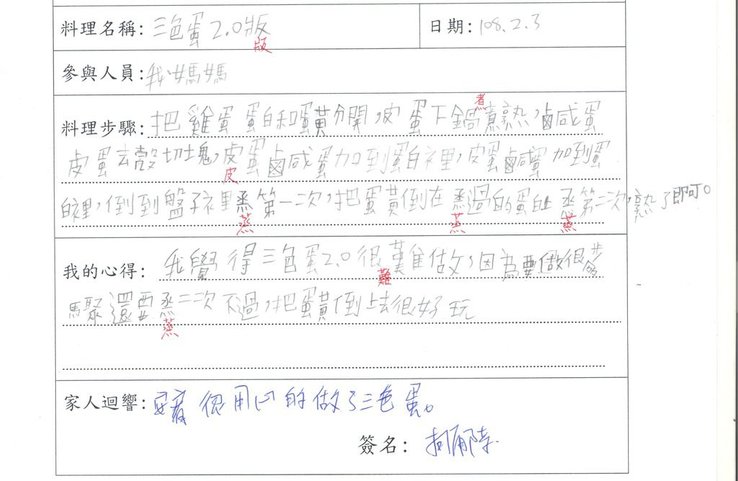 料理名稱：三色蛋2.0版
版
日期：108.2.3
參與人員：我、媽媽
煮
料理步驟：把雞蛋蛋白和蛋黃分開，皮蛋下鍋煮熟，鹹鹹蛋
皮蛋去殼切塊，皮蛋鹵咸蛋加到蛋白裡，皮蛋鹵咸蛋加到蛋
皮
白裡，倒到盤子裡蒸第一次，把蛋黃倒在蒸過的蛋上蒸第二次，熟了即可。
蒸 蒸 蒸
我的心得：我覺得三色蛋2.0很難做，因為要做很多步
難
驟還要蒸二次不過，把蛋黃倒上去很好玩
蒸
家人迴響：很用心的做了三色蛋。
簽名：